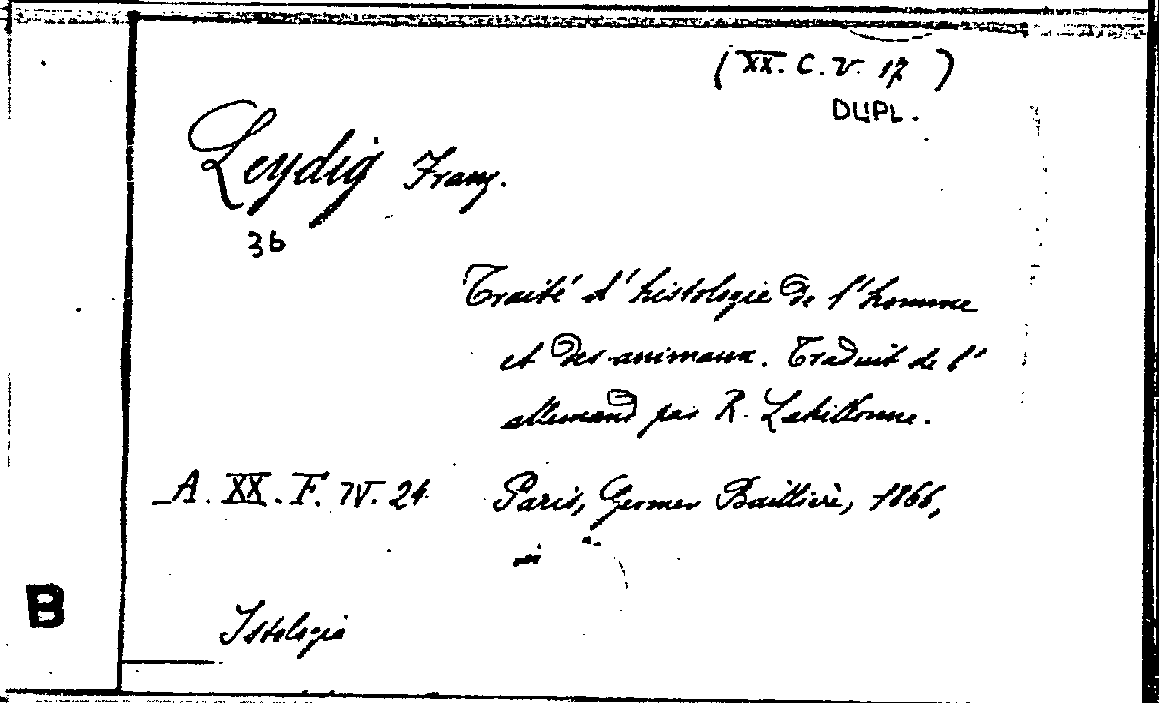 (XX. C. V. 17)
DUPL.
Leydig Franz.
36
Traité d'histologie de l'homme
et des animaux. Traduit de l'
allemand par R. Lahillonne.
A. XX. F. IV. 24 Paris, Germer Baillière, 1866,
in
B
Istologia